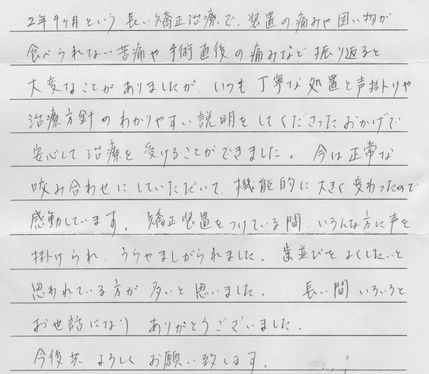 2年9ヶ月という長い矯正治療で、装置の痛みや固い物が
食べられない苦痛や手術直後の痛みなど振り返ると
大変なことがありましたが、いつも丁寧な処置と声掛けや
治療方針のわかりやすい説明をしてくださったおかげで
安心して治療を受けることができました。今は正常な
咬み合わせにしていただいて、機能的に大きく変わったので
感動しています。矯正装置をつけている間、いろんな方に声を
掛けられ、うらやましがられました。歯並びをよくしたいと
思われている方が多いと思いました。長い間いろいろと
お世話になりありがとうございました。
今後共よろしくお願い致します。